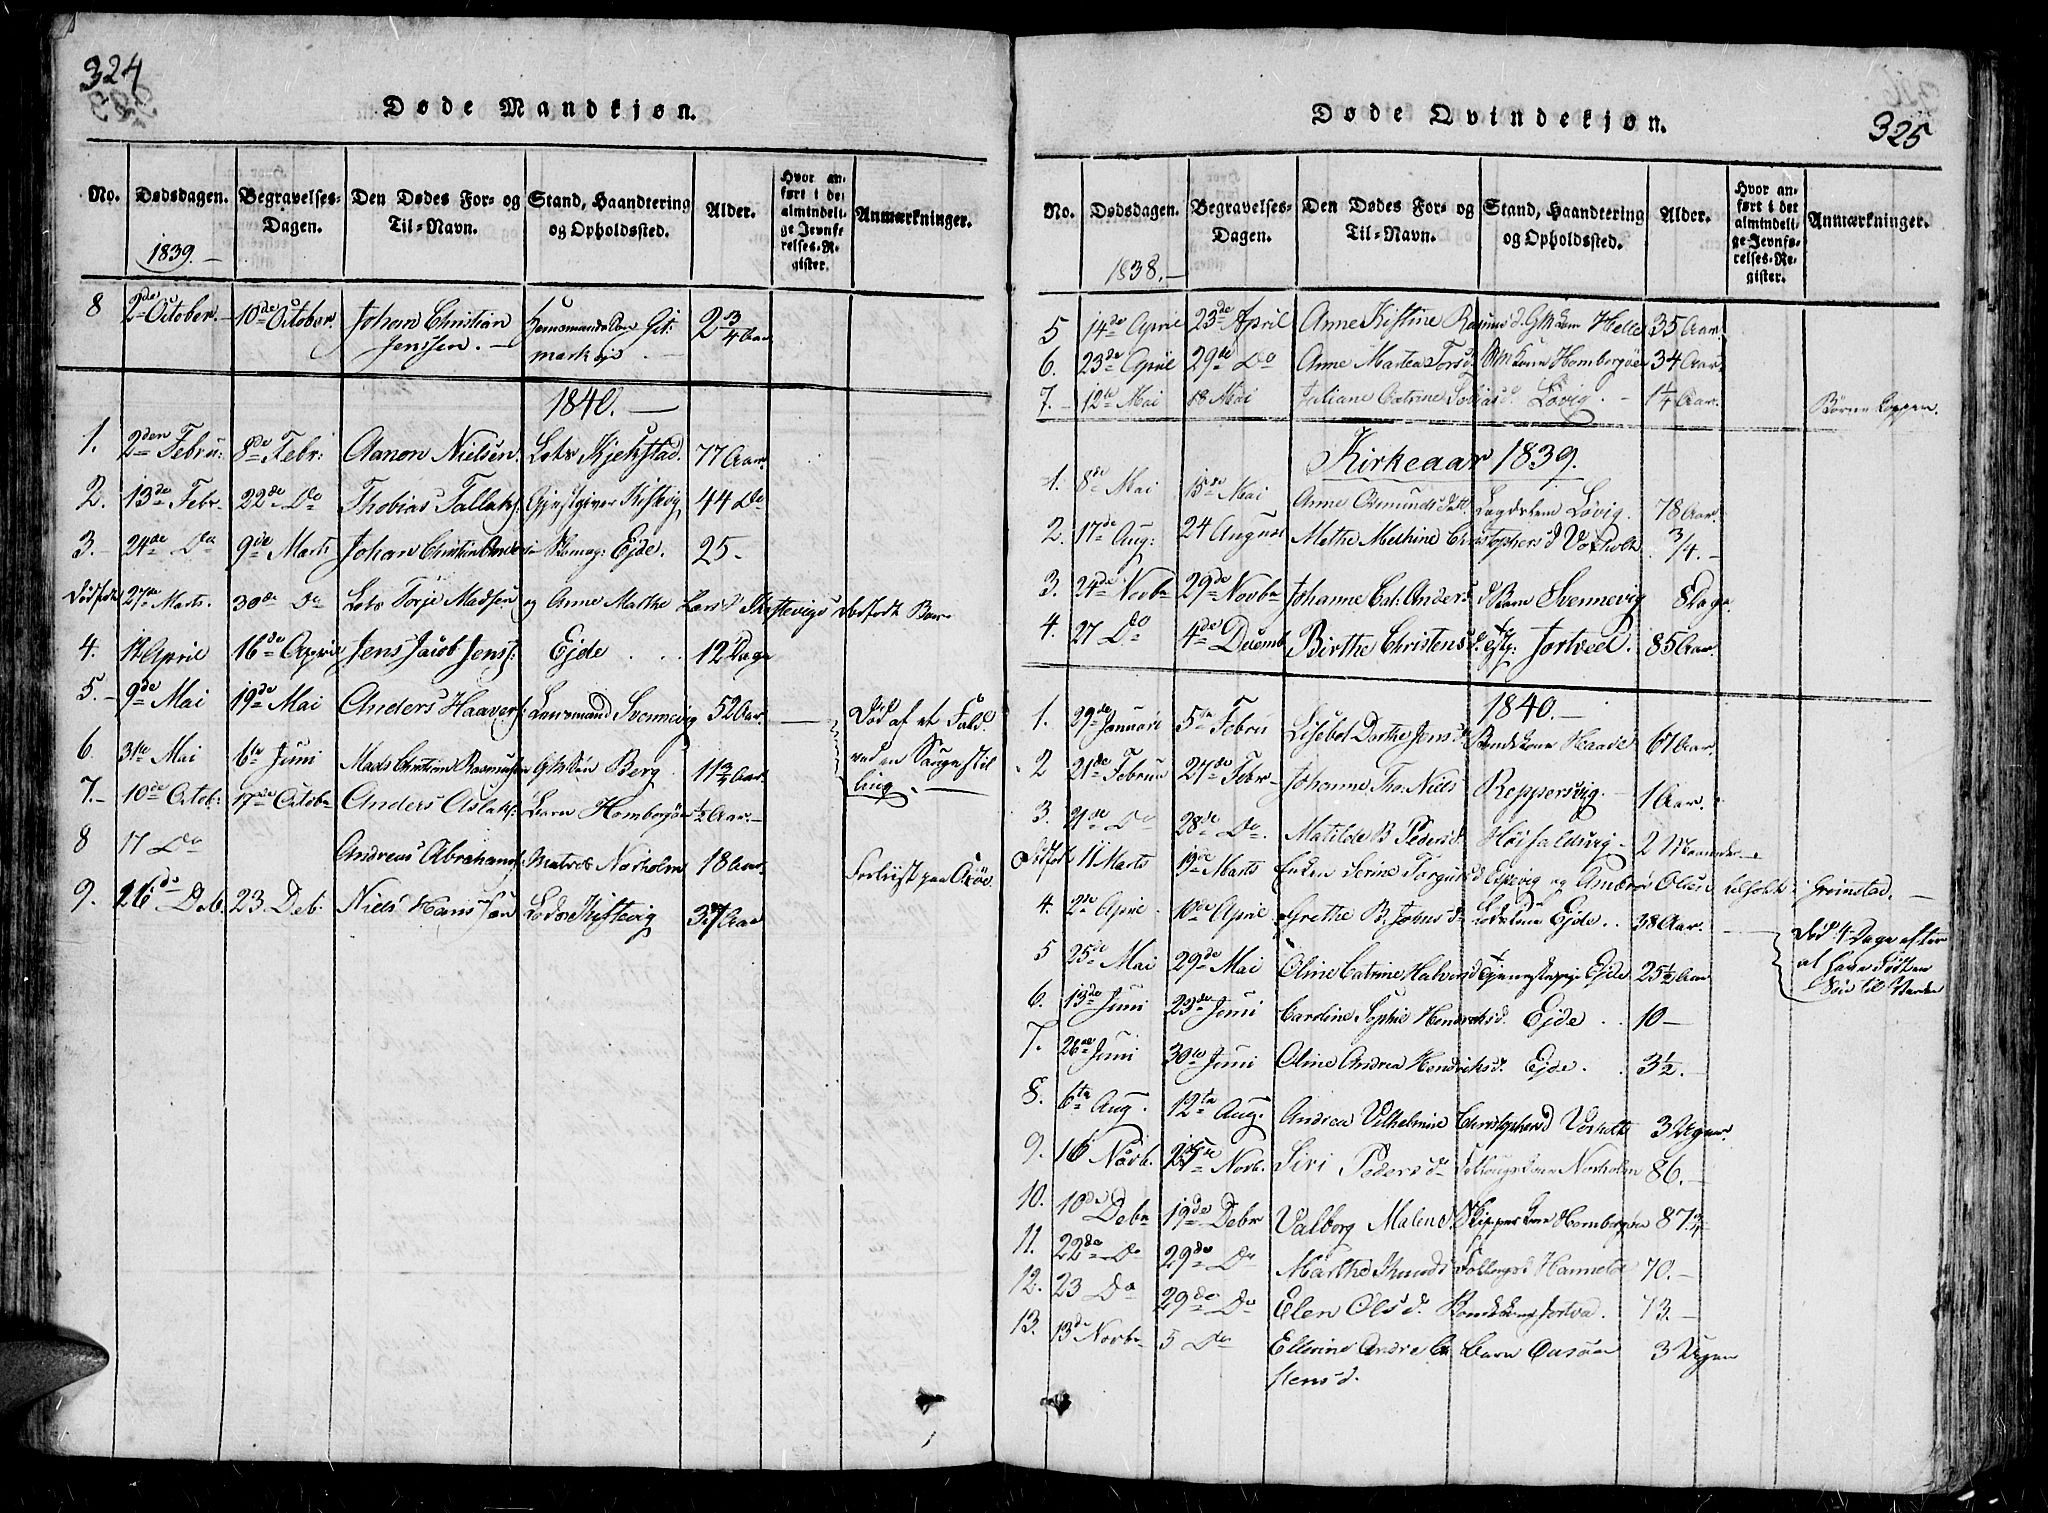 324
Døde Mandkjøn.
No. Dødsdagen. Begravelses-Dagen. Den Dødes For- og Til-Navn. Stand, Haandtering og Opholdssted. Alder. Hvor anført i det almindelige Jevnførelses-Register. Anmærkninger.
1839.
8 2de October 10de October Johan Christian Jenssen. Huusmands Søn 2 3/4 Aar
1840.
1. 2den Febru: 8de Febr: Aanon Nielsen Lots Kjekstad. 77 Aar.
2. 13de Febr. 22de Do Thobias Tallaks. Gjestgiver Kistevig 44 Do
3. 24de Do 9de Marts Johan Christian Anders Ejde. 25
Dødfødt 27de Marts. 30de Do Lots Torje Madsen og Anne Marthe Lars d. dødfødt Barn
4. 14 April 16de April Jens Jacob Jens: Ejde 12 Dage
5. 9de Mai 19de Mai Anders Haavers. Lensmand Svennevig 52 Aar Død af et Fald
ved en
ling.
6. 31te Mai 6te Juni Mads Christian Rasmussen GMSøn Berg 11 3/4 Aar
7. 10de Octob: 17de Octobr Anders Aslaks: Barn Homborgøen 1/2 Aar.
8 17 Do Andreas Abrahams: Matros Norholm 18 Aar Forliist paa
9. 16de Deb. 23 Deb. Niels Hanssen Lods Kistevig 37 Aar
325
Døde Qvindekjøn.
No. Dødsdagen. Begravelses-Dagen. Den Dødes For- og Til-Navn. Stand, Haandtering og Opholdssted. Alder. Hvor anført i det almindelige Jevnførelses-Register. Anmærkninger.
1838.
5 14de April 23de April Anne Kistine Rasmus d. GMKone Helle 35 Aar.
6. 23de April 29de Do Anne Martea Tors d. Kone Homborgøe 34 Aar
7. 12te Mai 18 Mai Juliane Catrine Tobias d. Løvig 1 1/4 Aar. Børne Koppen.
Kirkeaar 1839.
1. 8de Mai 15de Mai Anne Osmunds Datt Løvig. 78 Aar.
2. 17de Aug: 24 August Methe Methine Christophers d Voxholt 3/4.
3. 24de Novbr 29de Novbr Johanne Cat: Anders d Svennevig 8 Dage
4. 27 Do 4de Decemb Birthe Christens d. Jortveet. 85 Aar.
1840.
1. 29de Januari 5te Febru Lisebet Dorthe Jens d Bondekone Haade 67 Aar.
2 21de Februa 27de Febr Johanne Tho. Niels Reppersvig. 1 Aar.
3. 21de Do 28de Do Matilde B Peders d. Høifaldsvig 2 Maaneder
Dødfødt 11 Marts 19de Marts Serine Torgius d Espevig og Ambro Olsen tilholde i Grimstad.
4. 2de April 10de April Grethe B Jørns d. Lodskone Ejde. 38 Aar. Død 4 Dage efter
at have født en
til Verden
5 25de Mai 29de Mai Oline Catrine Halvors d Tjenestepige Ejde 25 1/2 Aar
6. 13de Juni 23de Juni Caroline Sophie Hendriks d. Ejde 10
7. 26de Juni 30te Juni Oline Andrea Hendriks d. Ejde. 3 1/2.
8. 6te Aug. 12te Aug. Andrea Vilhelmine Christophers d Voxholt 3 Uger.
9. 16 Novb. Novb. Siri Peders d Norholm 86.
10. 10de Debr 19de Debr Valborg Malene Skipper Kone Homborgøen 87 3/4
11. 22de Do 29de Do Marthe Knuds d 70.
12. 23 Do 29de Do Elen Ols d. Bondekone Jortve. 73.
13. 13de Novbr 5 Do Ellevine Andrea Carstens d. Barn 3 Uger